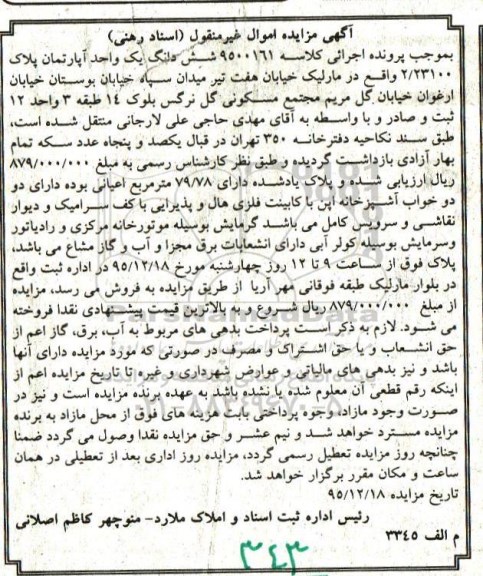 آگهی مزایده اموال غیرمنقول (اسناد رهنی)
بموجب پرونده اجرائی کلاسه ۹۵۰۰۱۶۱ شش دانگ یک واحد آپارتمان پلاک
۲/۲۳۱۰۰ واقع در مارلیک خیابان هفت تیر میدان سپاه خیابان بوستان خیابان
ارغوان خیابان گل مریم مجتمع مسکونی گل نرگس بلوک ۱۴ طبقه ۳ واحد ۱۲
ثبت و صادر و با واسطه به آقای مهدی حاجی علی لارجانی منتقل شده است،
طبق سند نکاحیه دفترخانه ۳۵۰ تهران در قبال یکصد و پنجاه عدد سکه تمام
بهار آزادی بازداشت گردیده و طبق نظر کارشناس رسمی به مبلغ ۸۷۹/۰۰۰/۰۰۰
ریال ارزیابی شده و پلاک یادشده دارای ۷۹/۷۸ مترمربع اعیانی بوده دارای دو
دو خواب آشپزخانه اپن با کابینت فلزی هال و پذیرایی با کف سرامیک و دیوار
نقاشی و سرویس کامل می باشد گرمایش بوسیله موتورخانه مرکزی و رادیاتور
وسرمایش بوسیله کولر آبی دارای انشعابات برق مجزا و آب و گاز مشاع می باشد،
پلاک فوق از ساعت ۹ تا ۱۲ روز چهارشنبه مورخ ۹۵/۱۲/۱۸ در اداره ثبت واقع
در بلوار مارلیک طبقه فوقانی مهر آریا از طریق مزایده به فروش می رسد، مزایده
از مبلغ ۸۷۹/۰۰۰/۰۰۰ ریال شروع و به بالاترین قیمت پیشنهادی نقدا فروخته
می شود. لازم به ذکر است پرداخت بدهی های مربوط به آب، برق، گاز اعم از
حق انشعاب و یا حق اشتراک و مصرف در صورتی که مورد مزایده دارای آنها
باشد و نیز بدهی های مالیاتی و عوارض شهرداری و غیره تا تاریخ مزایده اعم از
اینکه رقم قطعی آن معلوم شده یا نشده باشد به عهده برنده مزایده است و نیز در
صورت وجود مازاد، وجوه پرداختی بابت هزینه های فوق از محل مازاد به برنده
مزایده مسترد خواهد شد و نیم عشر و حق مزایده نقدا وصول می گردد ضمنا
چنانچه روز مزایده تعطیل رسمی گردد، مزایده روز اداری بعد از تعطیلی در همان
ساعت و مکان مقرر برگزار خواهد شد.
تاریخ مزایده ۹۵/۱۲/۱۸
رئیس اداره ثبت اسناد و املاک ملارد- منوچهر کاظم اصلانی
م الف ۳۳۴۵
۳۴۳